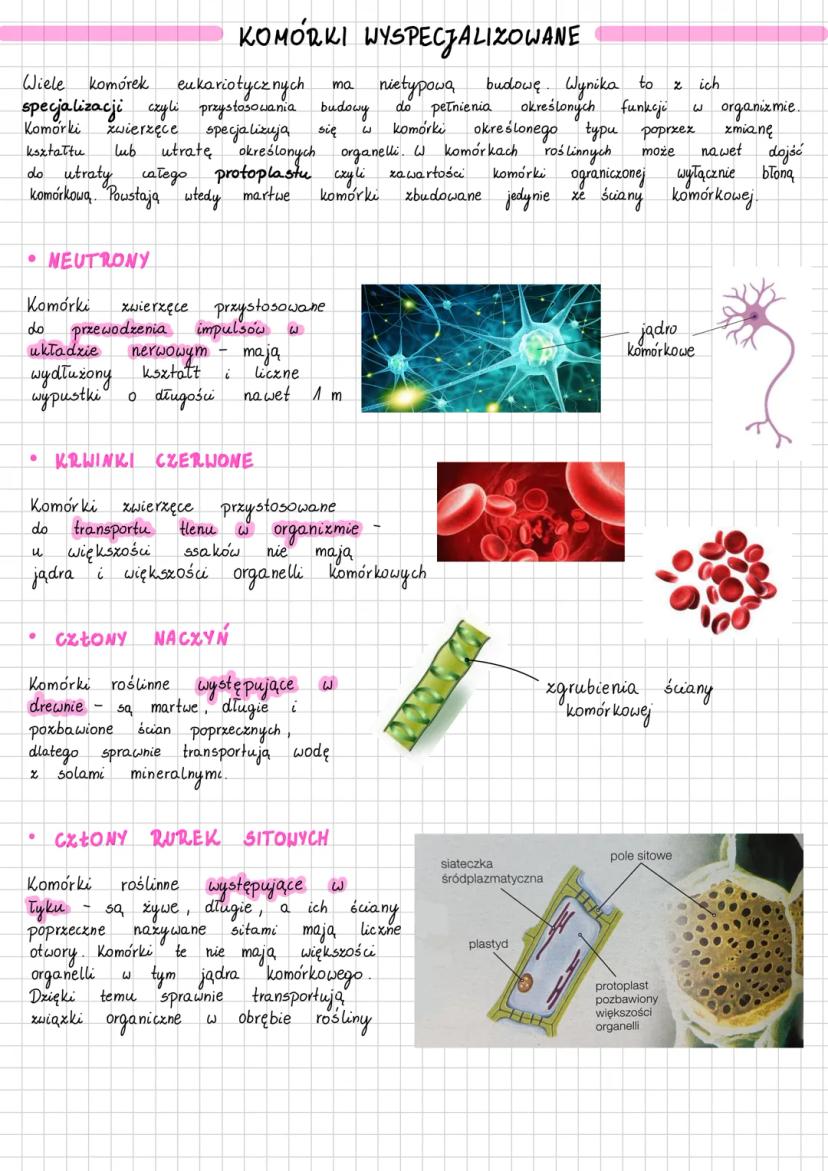 KOMÓRKI WYSPECJALIZOWANE
Wiele komórek eukariotycznych ma nietypową budowę. Wynika to z ich
specjalizacji czyli przystosowania budowy do pełnienia określonych funkcji w organizmie.
Komórki zwierzęce specjalizują się w komórki określonego typu poprzez zmianę
kształtu lub utratę określonych organelli. W komórkach roślinnych może nawet dojść
do utraty całego protoplastu czyli zawartości komórki ograniczonej wyłącznie błoną
komórkową. Powstają wtedy martwe komórki zbudowane jedynie ze ściany komórkowej.
• NEUTRONY
Komórki zwierzęce przystosowane
do przewodzenia impulsów w
układzie nerwowym - mają
wydłużony kształt i liczne
wypustki o długości nawet 1 m
jądro
komórkowe
• KRWINKI CZERWONE
Komórki zwierzęce przystosowane
do transportu tlenu w organizmie -
u większości ssaków nie mają
jądra i większości organelli komórkowych
• CZŁONY NACZYŃ
Komórki roślinne występujące w
drewnie - są martwe, długie i
pozbawione ścian poprzecznych,
dlatego sprawnie transportują wodę
z solami mineralnymi.
zgrubienia ściany
komórkowej
• CZŁONY RUREK SITOWYCH
Komórki roślinne występujące w
łyku - są żywe, długie, a ich ściany
poprzeczne nazywane sitami mają liczne
otwory. Komórki te nie mają większości
organelli w tym jądra komórkowego.
Dzięki temu sprawnie transportują
związki organiczne w obrębie rośliny
siateczka
śródplazmatyczna
pole sitowe
plastyd
protoplast
pozbawiony
większości
organelli